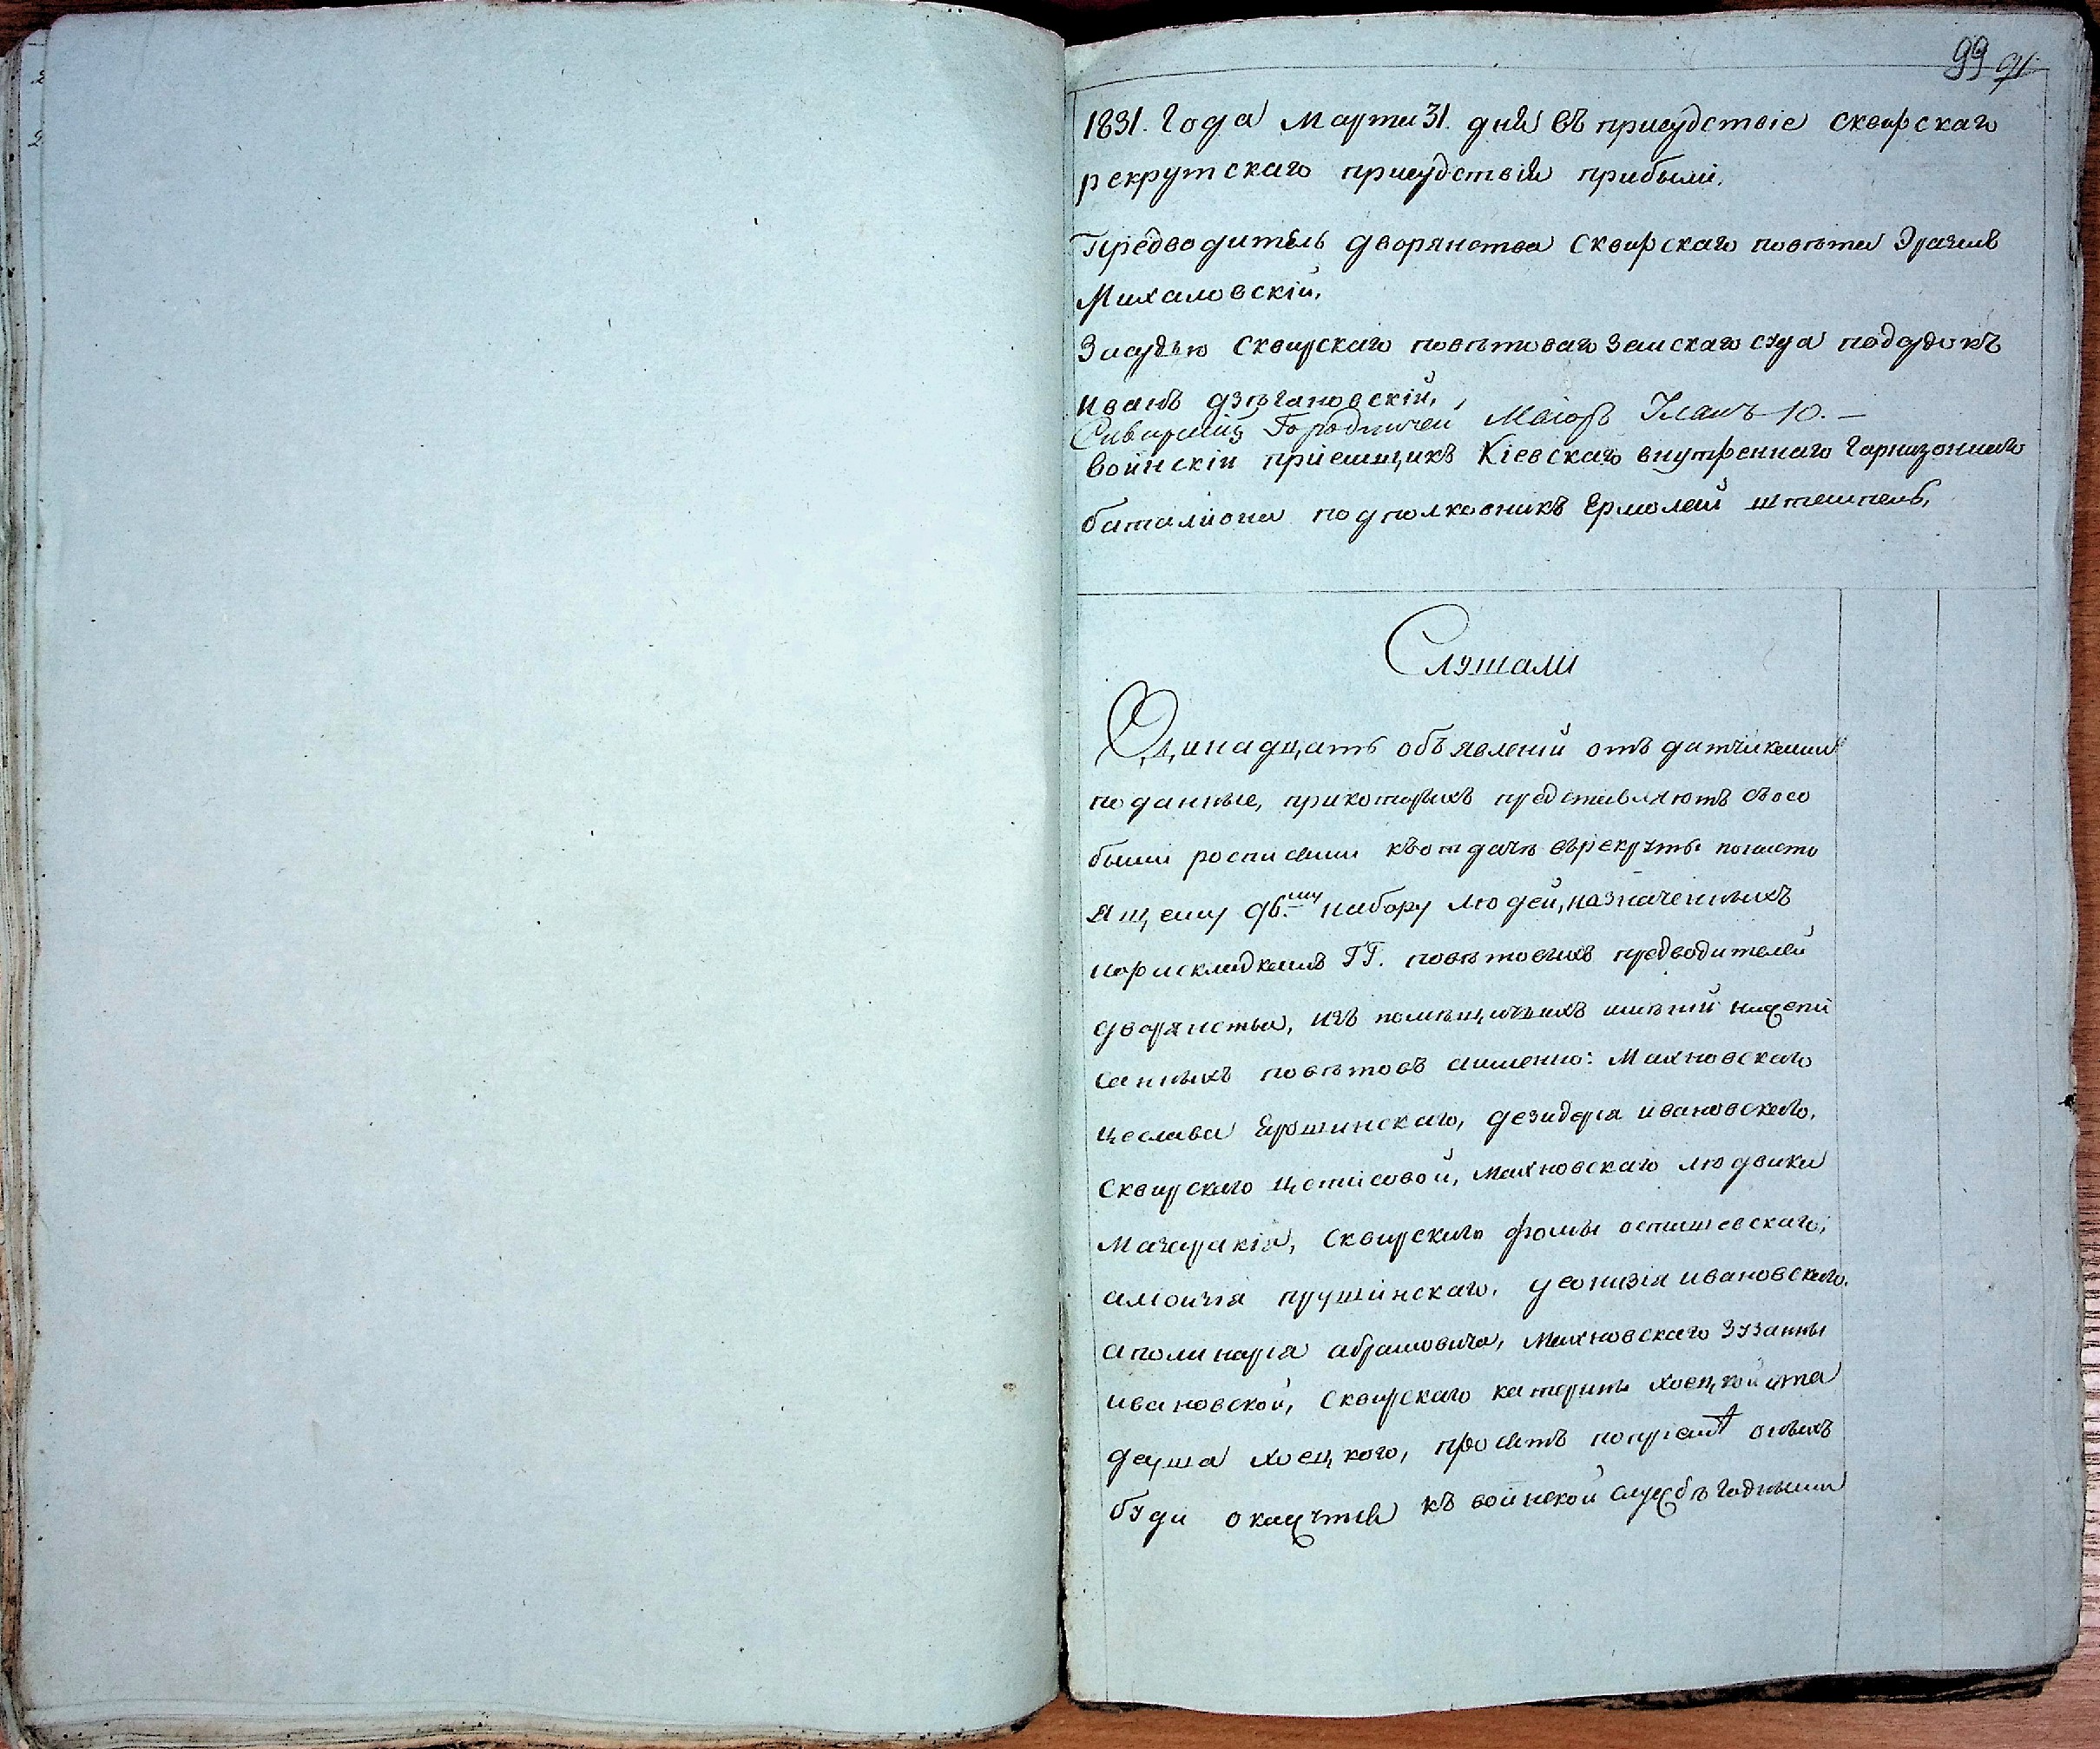 99 91
1831. Года Марта 31. дня въ присудствіе сквирскаго
рекрутскаго присудствія прибыли,
Предводитель дворянства Сквирскаго повѣта Эразмъ
Михаловскій,
Засудью Сквирскаго повѣтоваго Земскаго суда подсудокъ
иванъ дзѣгановскій,
Сквирский Городничей Маіоръ
воинскій приемщикъ Кіевскаго внутреннаго Гарнизоннаго
баталиона подполковникъ Ермолай штемпель,
Слушали
Одинадцать объявленій отъ датчиками
поданные, прикоторыхъ представляютъ съосо
быми росписями къотдачѣ върекруты понасто
ящему 96.му набору людей, назначенныхъ
пораскладкамъ ГГ. повѣтовыхъ предводителей
дворянства, изъ помѣщичьихъ имѣній нижепи
санныхъ повѣтовъ аименно: Махновскаго
цеслава Ярошинскаго, дезидерія ивановскаго,
Сквирскаго цеписовой, Махновскаго людвика
Мазаракія, Сквирскаго фомы осташевскаго,
алоизія прушинскаго, деонизія ивановскаго,
аполинарія абрамовича, Махновскаго Зузанны
ивановской, Сквирскаго катерины хоецкой ита
деуша хоецкого, просятъ попріемѣ оныхъ
буди окажутся къ воинской службѣ годными